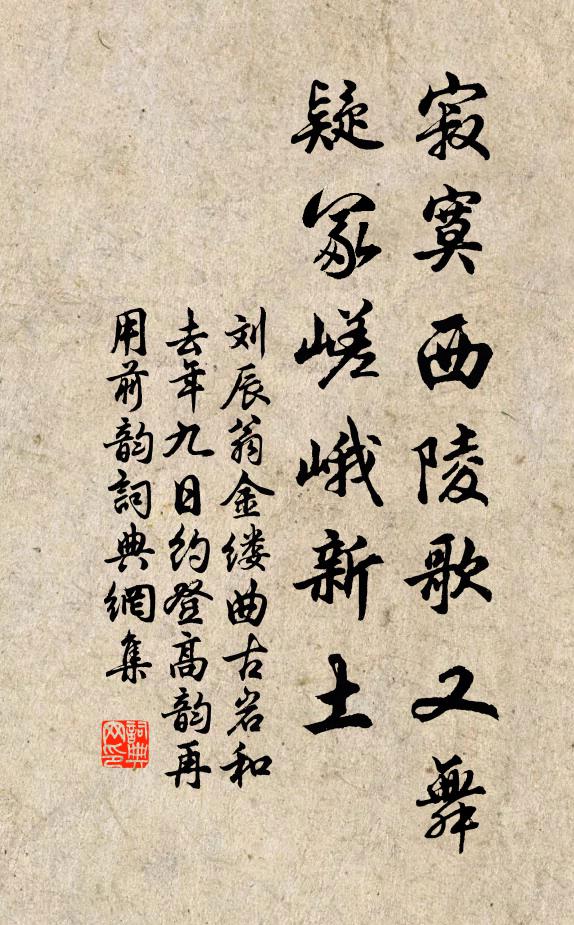 寂寞西陵歌又舞
疑冢嵯峨新土
刘辰翁金缕曲古岩和
去年九日约登高韵再
用前韵詞典網集
詞典
网印